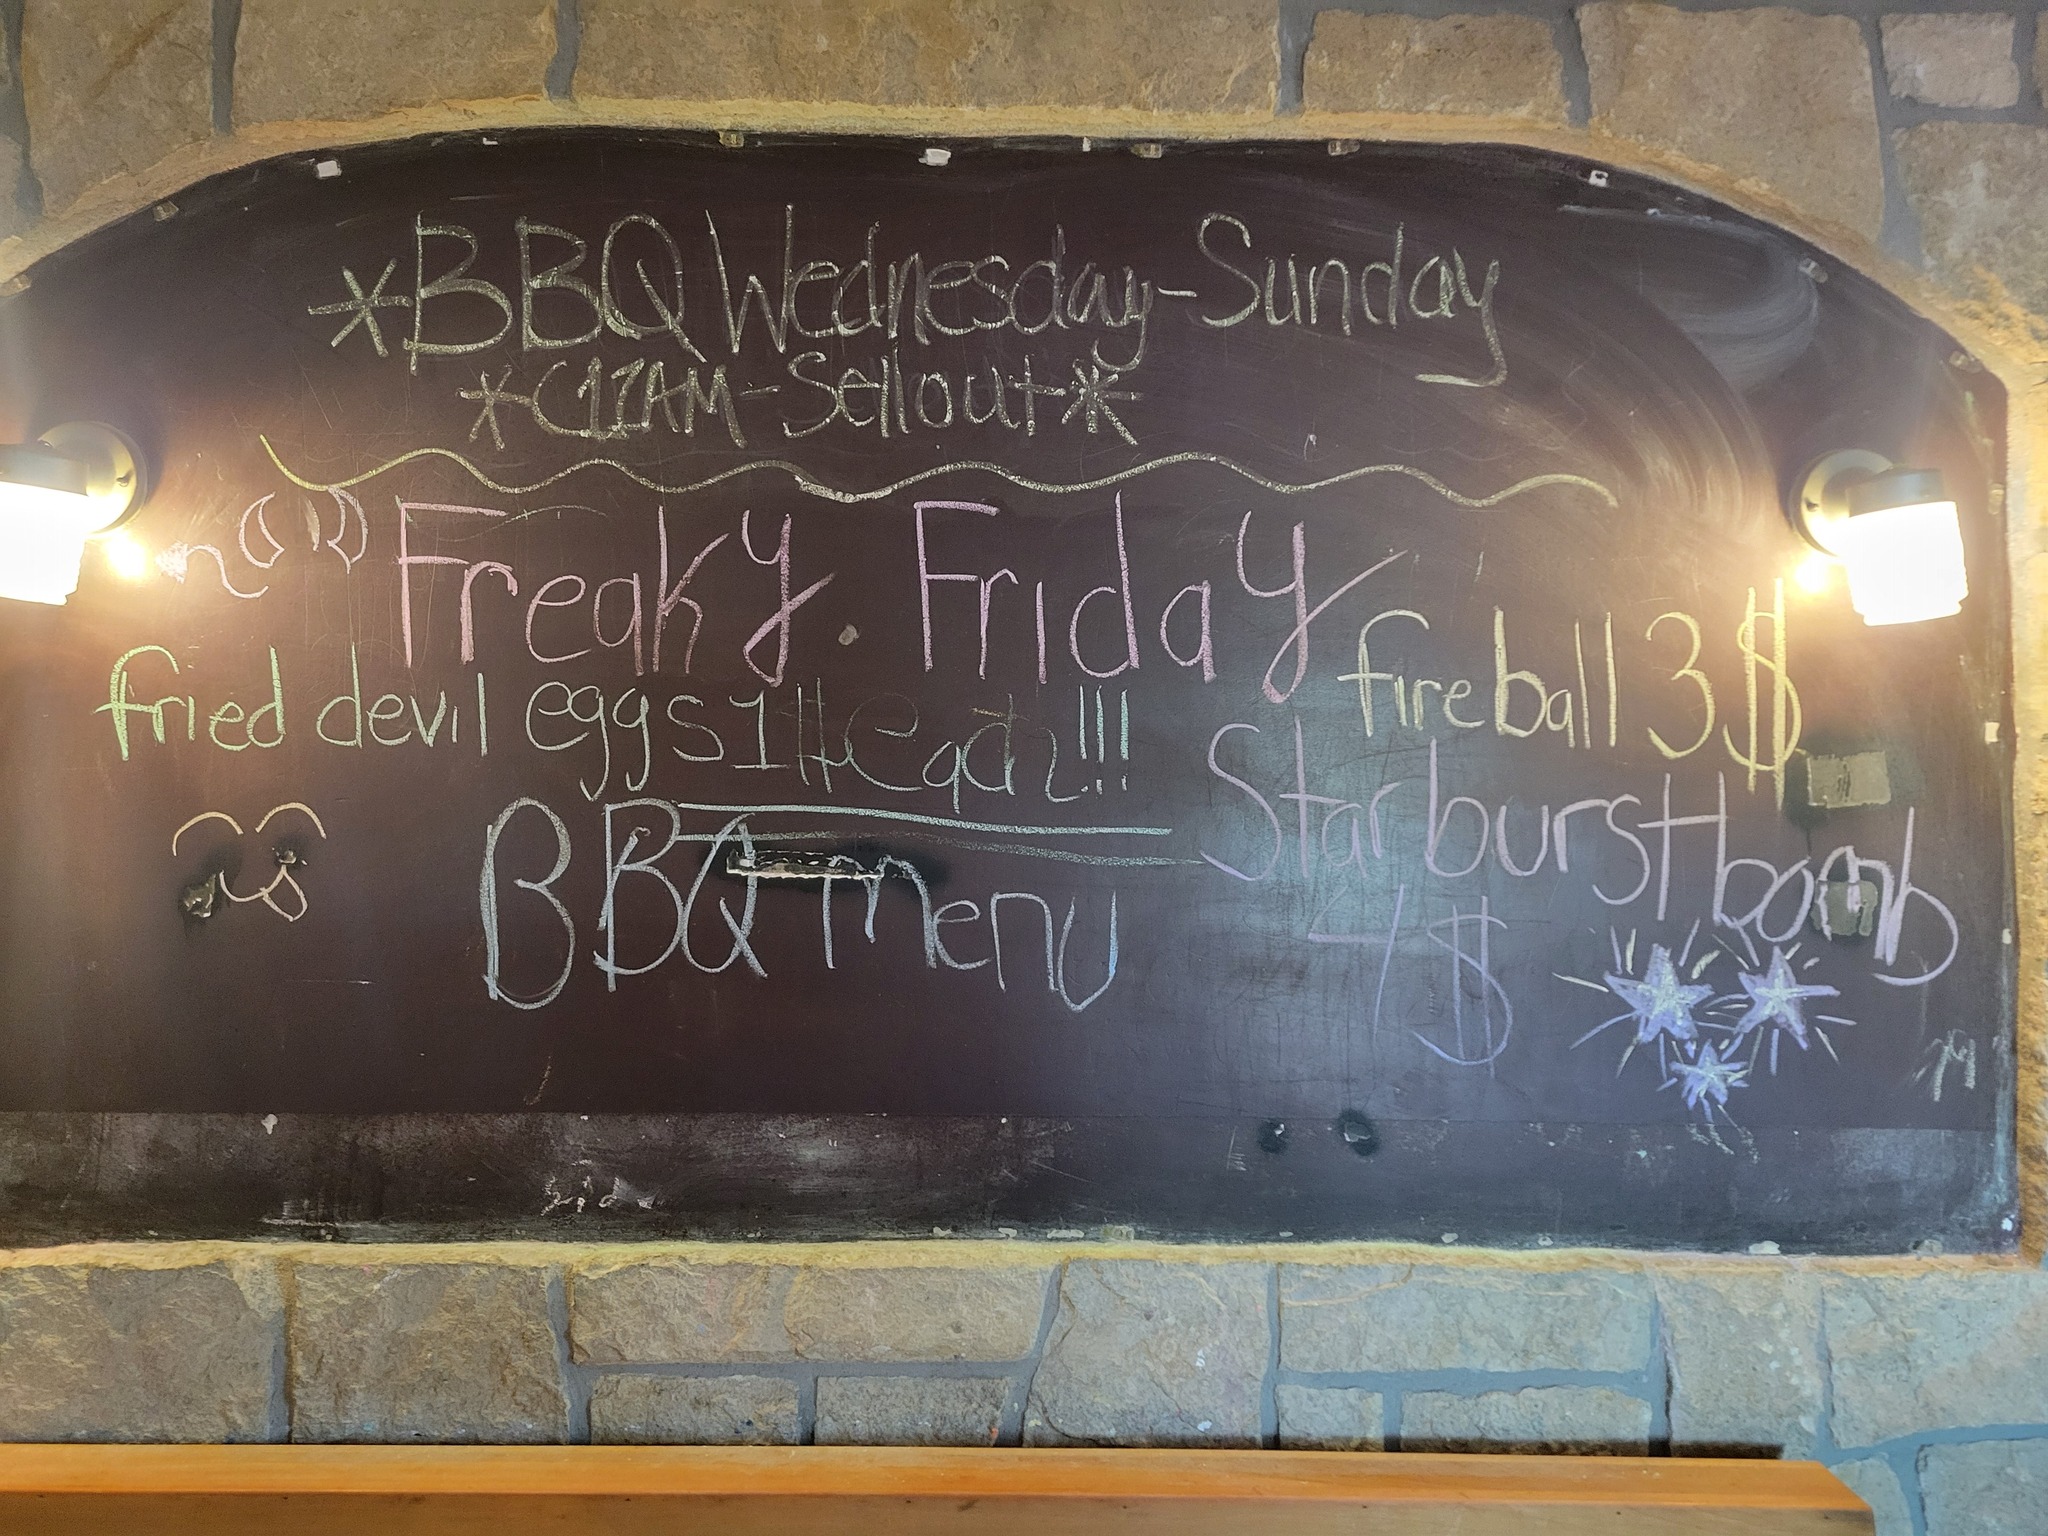 *BBQ Wednesday-Sunday
*C11AM-Sellout*
Freaky Friday
fried devil eggs 1# each!!!
fireball 3$
Starburst bomb
4$
BBQ menu